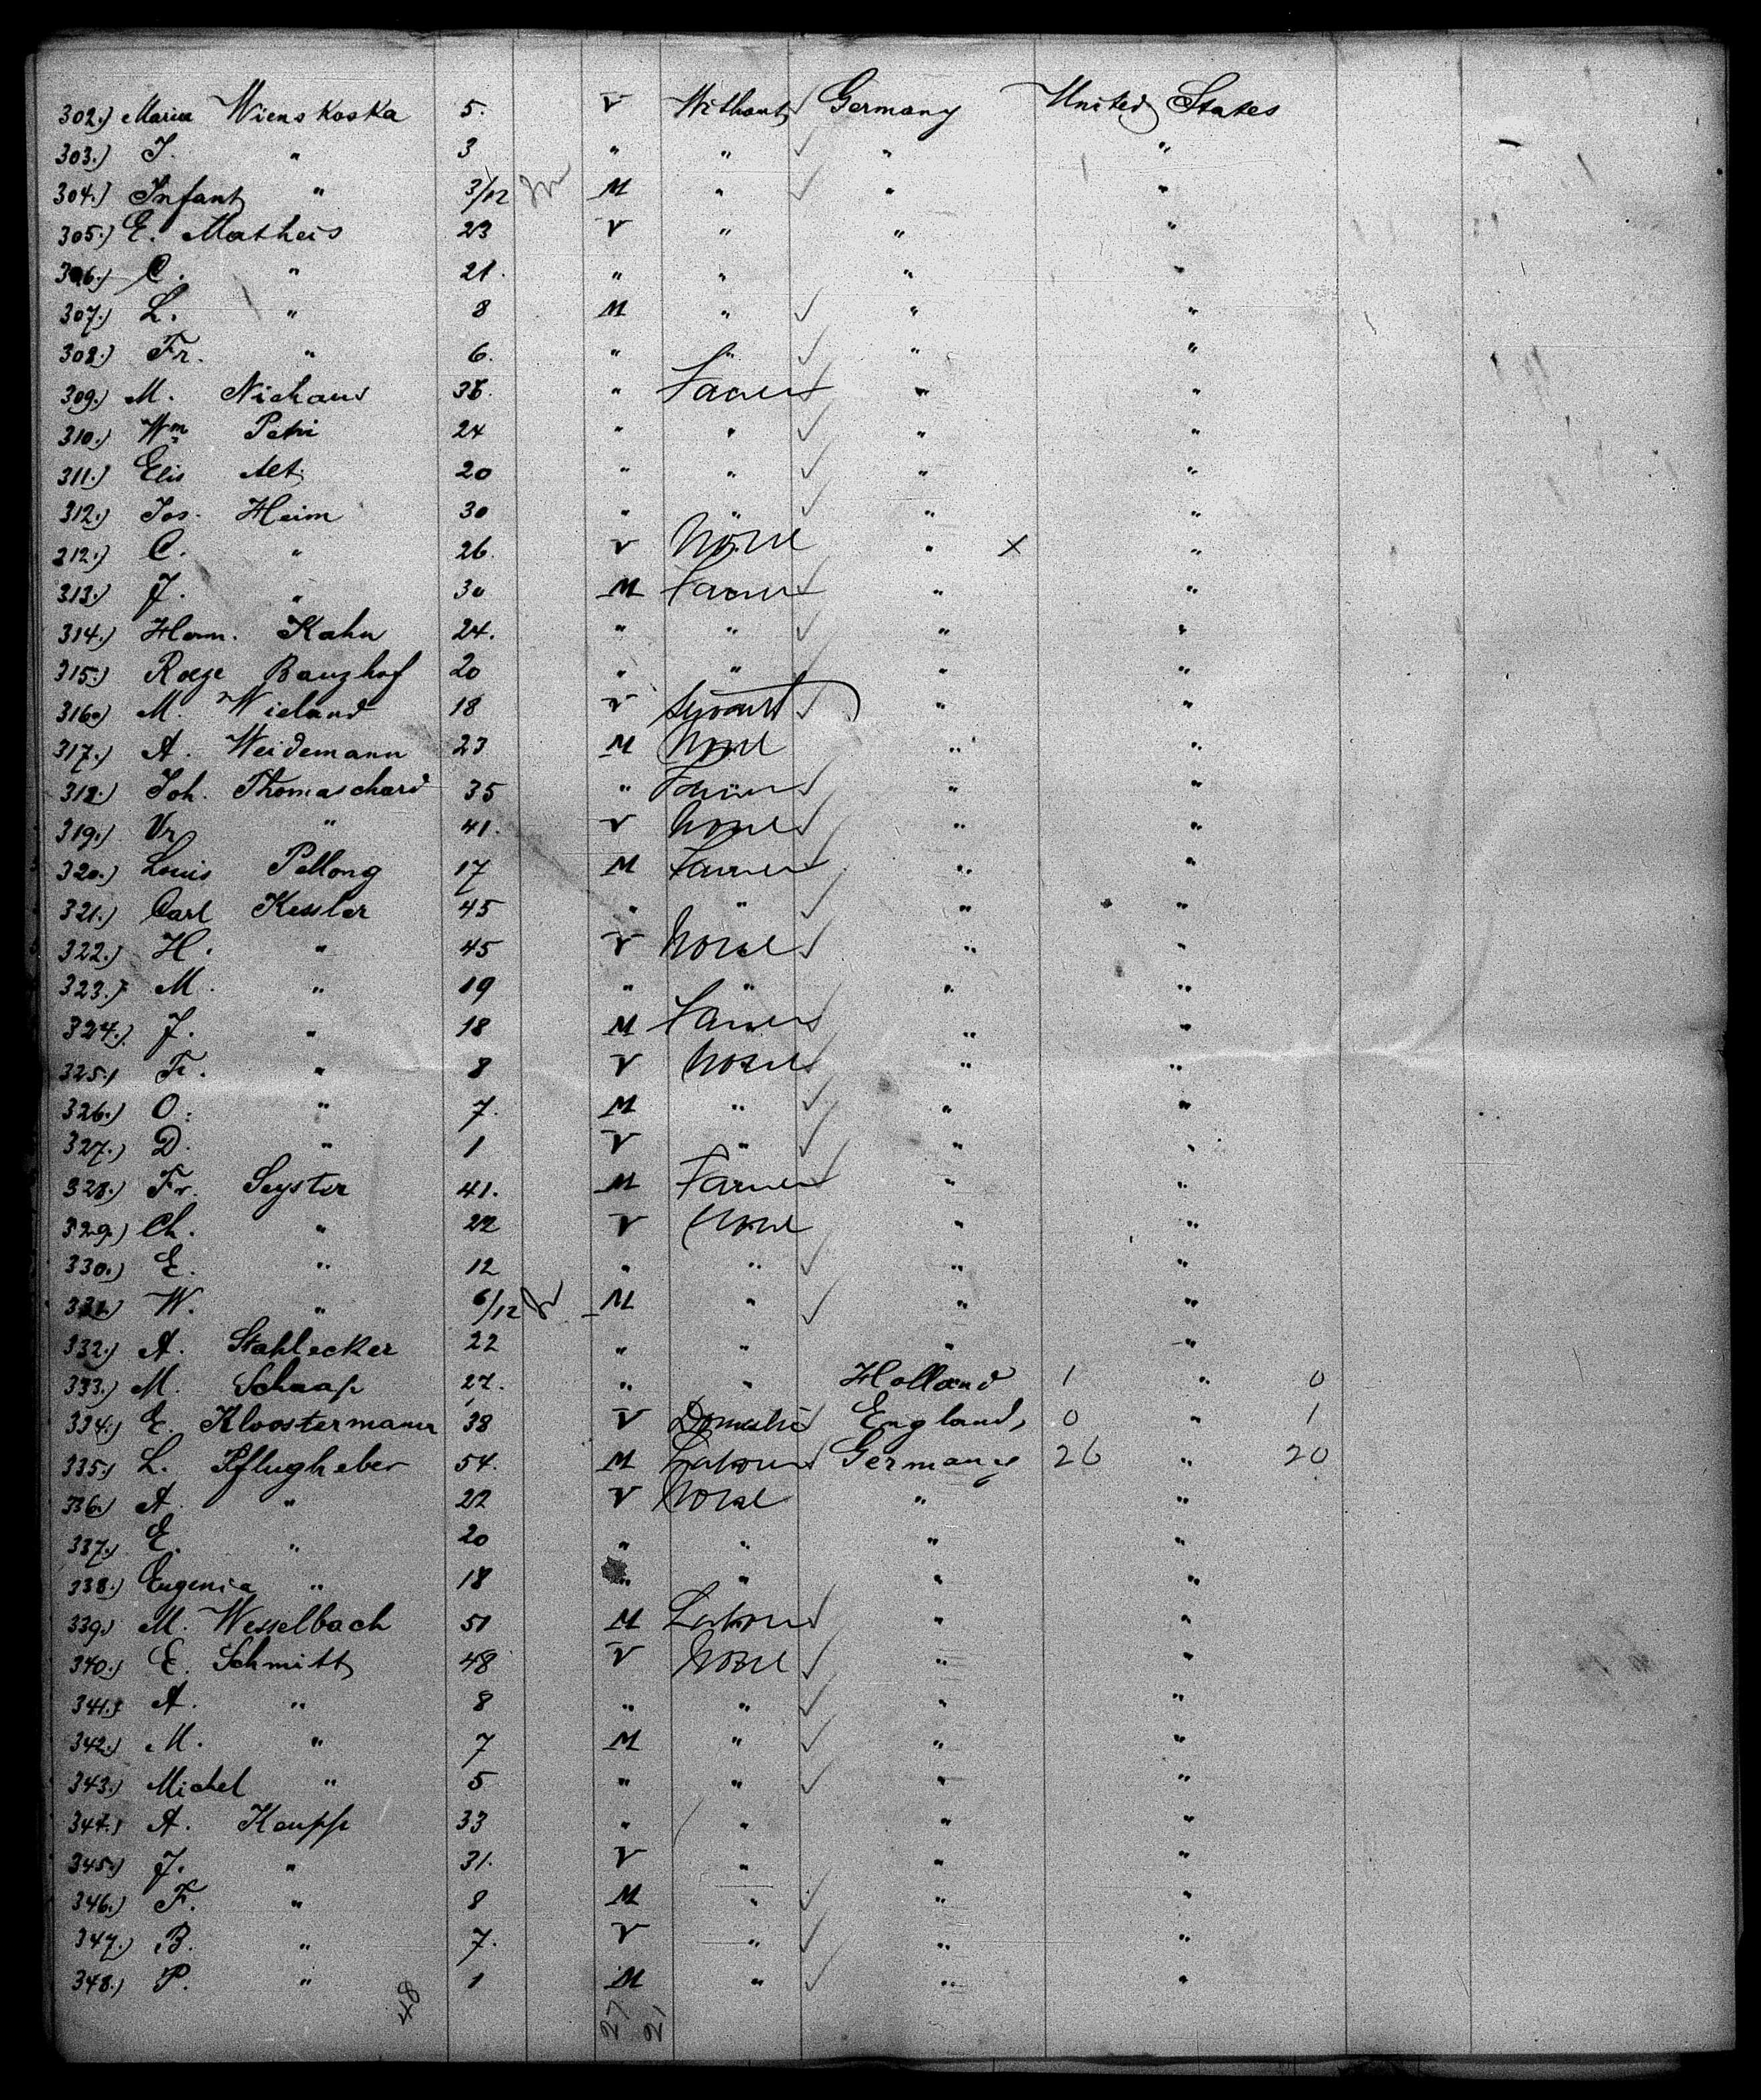 302.) Maria Wienskoska 5. V Without Germany United States
303.) J. " 3 " " "  "
304.) Infant " 3/12 M " " "
305.) E. Matheis 23 V " " "
306.) C. " 21. " " " "
307.) L. " 8 M " " "
308.) Fr. " 6. " " " "
309.) M. Niehaus 38. " Farmer " "
310.) Wm Petri 24 " " " "
311.) Elis Alt 20 " " " "
312.) Jos. Heim 30 " " " "
312.) C. " 26. V None " X "
313.) J. " 30 M Farmer " "
314.) Herm. Kahn 24. " " " "
315.) Banzhof 20 " " " "
316.) M. Wieland 18 V Servant " "
317.) A. Weidemann 23 M None " "
318.) Joh. Thomaschard 35 " Farmer " "
319.) Vr. " 41. V None " "
320.) Louis Pellong 17 M Farmer " "
321.) Carl Kessler 45 " " " "
322.) H. " 45 V None " "
323.) M. " 19 " " " "
324.) J. " 18 M Farmer " "
325.) Fr. " 8 V None " "
326.) O. " 7. M " " "
327.) D. " 1 V " " "
328.) Fr. Seyster 41. M Farmer " "
329.) Ch. " 22 V None " "
330.) E. " 12 " " " "
331.) W. " 6/12 M " " "
332.) A. Stahlecker 22 " " " "
333.) M. Schaap 27. " " Holland 1 " 0
334.) E. Kloostermann 38 V Domestic England, 0 " 1
335.) L. Pflugheber 54. M Laborer Germany 26 " 20
336.) A. " 22 V None " "
337.) E. " 20 " " " "
338.) Eugenia " 18 " " " "
339.) M. Wesselbach 51 M Laborer " "
340.) E. Schmitt 48 V None " "
341.) A. " 8 " " " "
342.) M. " 7 M " " "
343.) Michel " 5 " " " "
344.) A. Kaupp 33 " " " "
345.) J. " 31. V " " "
346.) F. " 8 M " " "
347.) B. " 7. V " " "
348.) P. " 1 M " " "
48 27 21